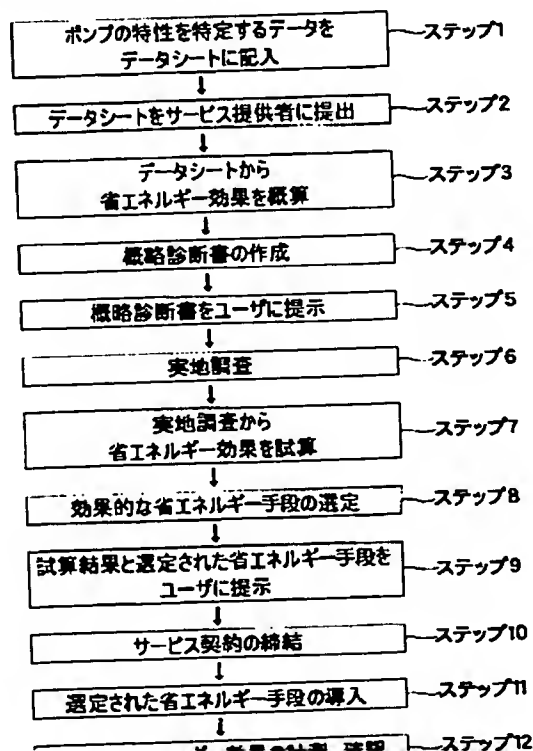 ポンプの特性を特定するデータを
データシートに記入
ステップ1
データシートをサービス提供者に提出
ステップ2
データシートから
省エネルギー効果を概算
ステップ3
概略診断書の作成
ステップ4
概略診断書をユーザに提示
ステップ5
実地調査
ステップ6
実地調査から
省エネルギー効果を試算
ステップ7
効果的な省エネルギー手段の選定
ステップ8
試算結果と選定された省エネルギー手段を
ユーザに提示
ステップ9
サービス契約の締結
ステップ10
選定された省エネルギー手段の導入
ステップ11
ステップ12